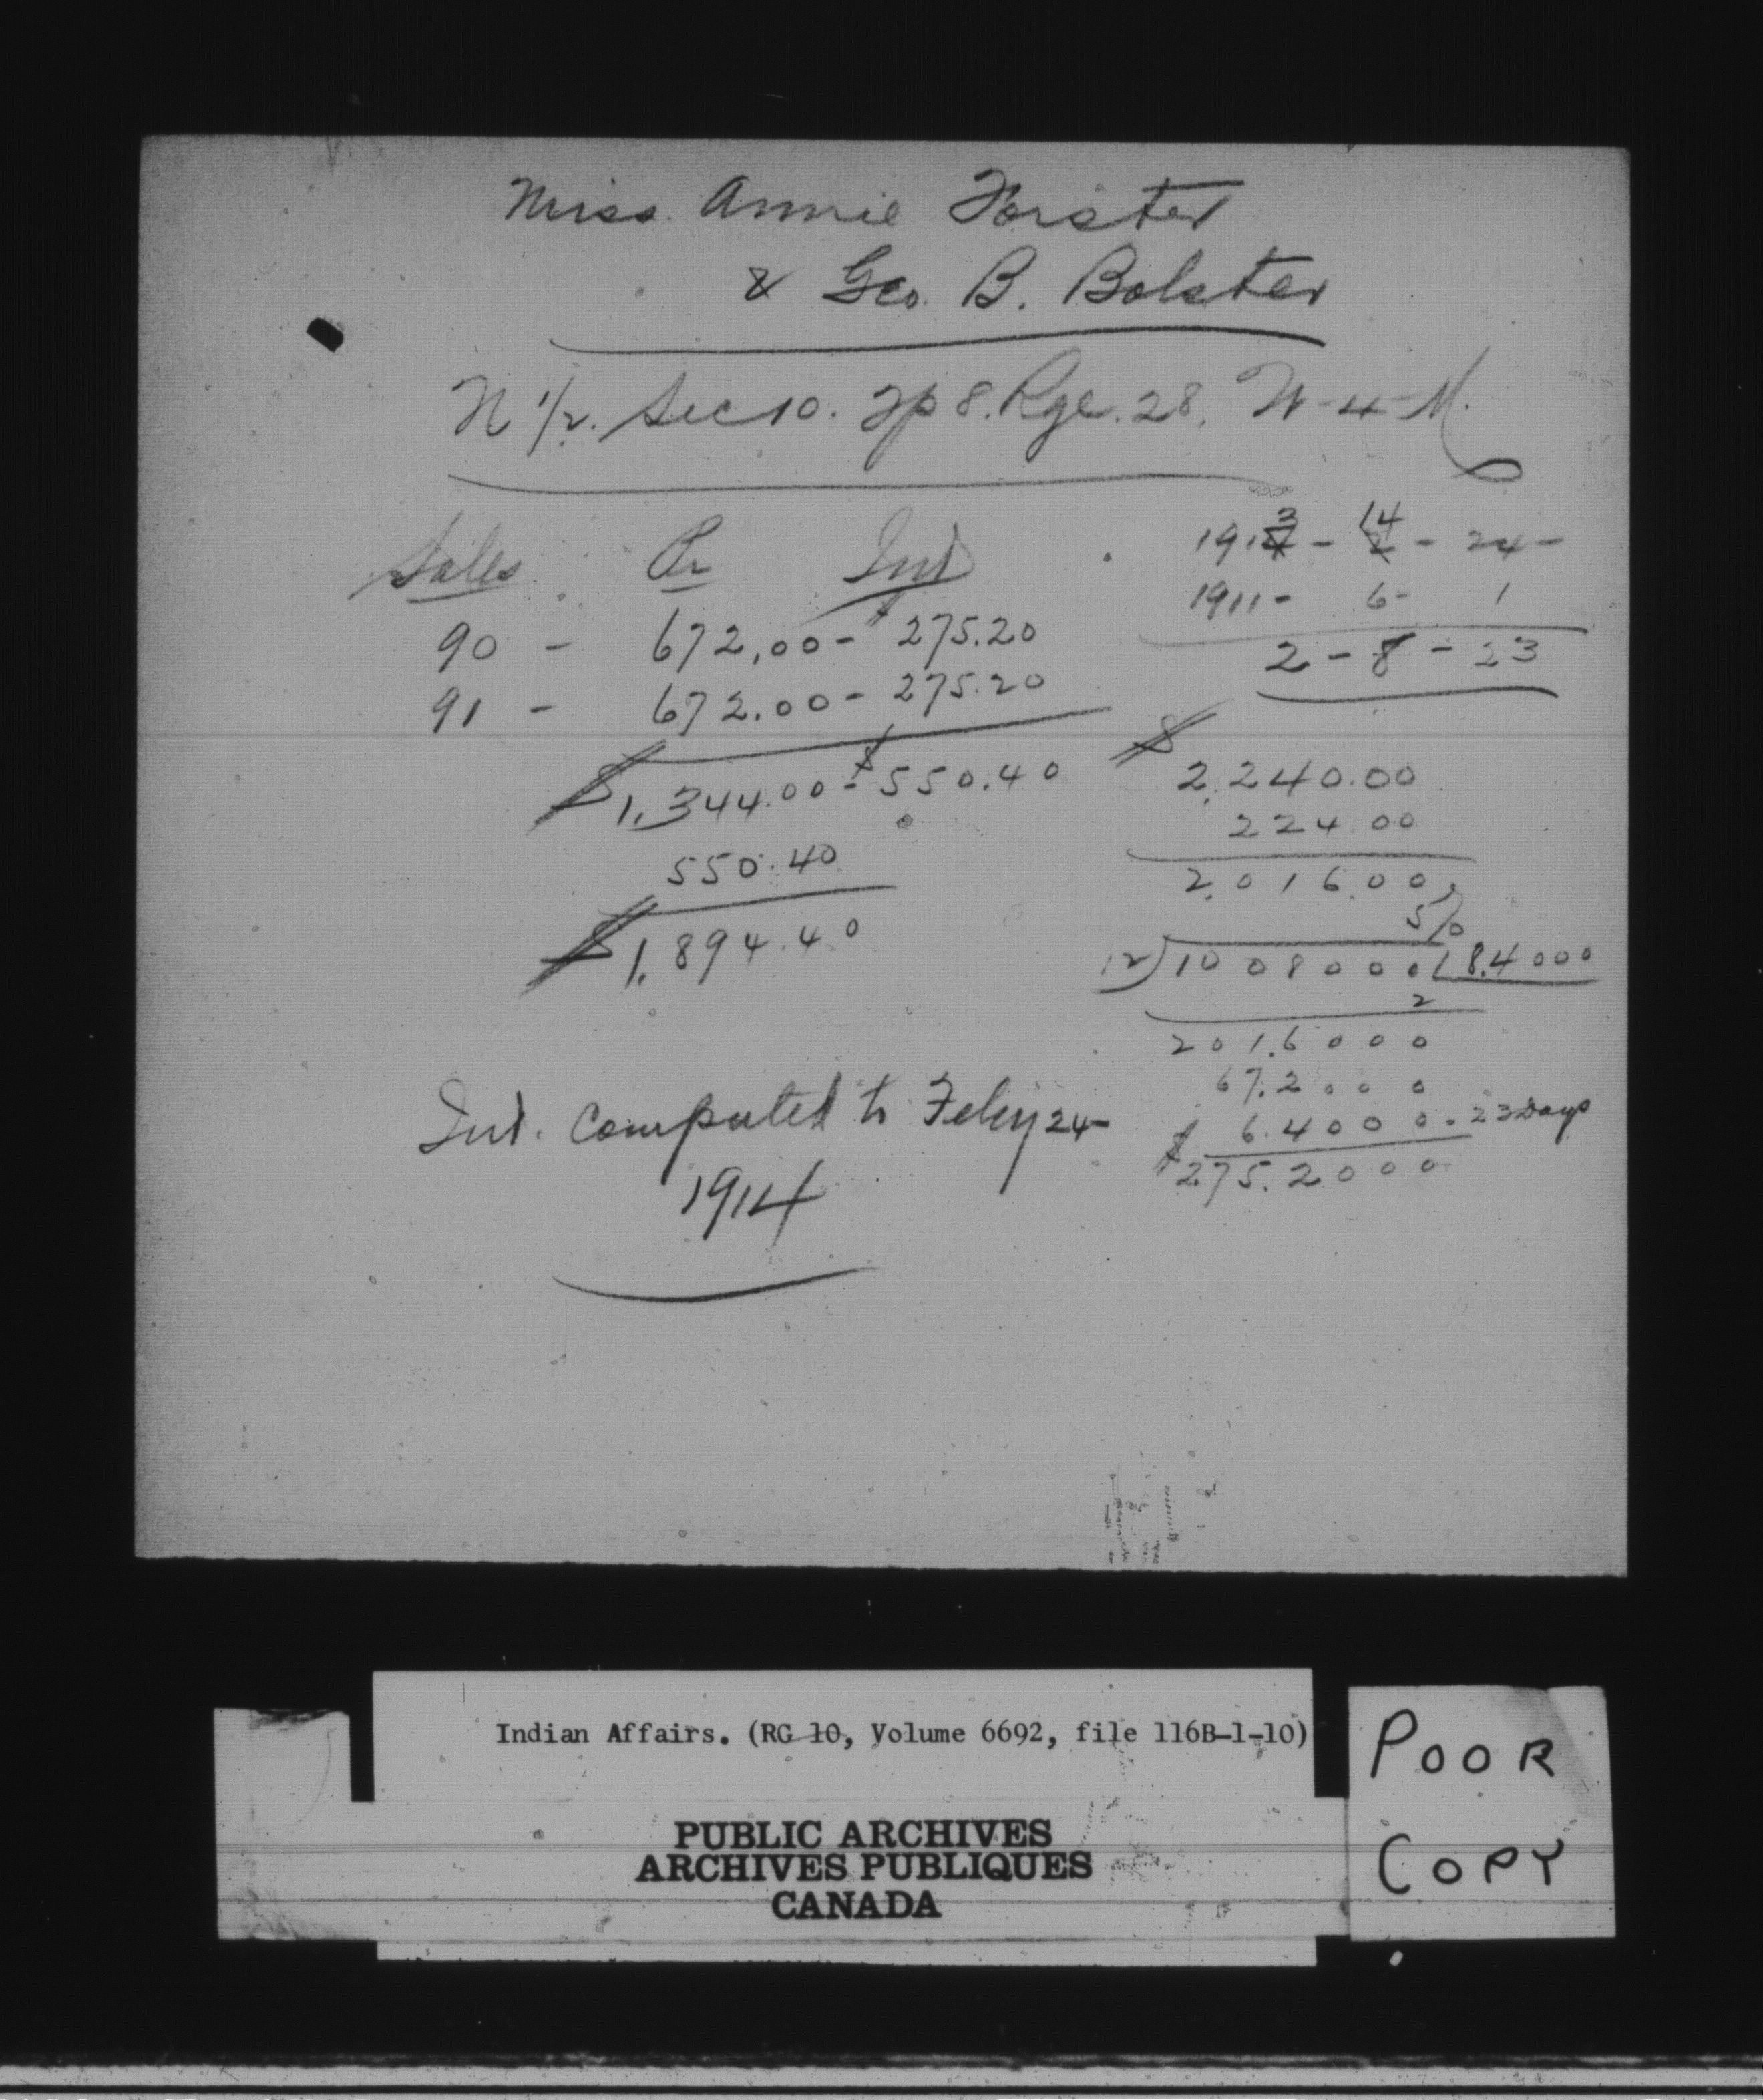 Miss Annie Forster
& Geo. B. Bolster
N 1/2. Sec 10. Tp 8. Rge. 28. W-4-M.
Sales Pr Int
90 - 672.00 - $275.20
91 - 672.00 - 275.20
$1,344.00 - $550.40
550.40
$1,894.40
Int. computed to Feby 24-
1914
1914 3 - 2 14 - 24 -
1911 - 6 - 1
2 - 8 - 23
$
2,240.00
224.00
2,016.00
5%
12)1008000(8.4000
2
201.6000
67.2000
6.4000 - 23 Days
$275.2000
Indian Affairs. (RG 10, Volume 6692, file 116B-1-10)
PUBLIC ARCHIVES
ARCHIVES PUBLIQUES
CANADA
POOR
COPY